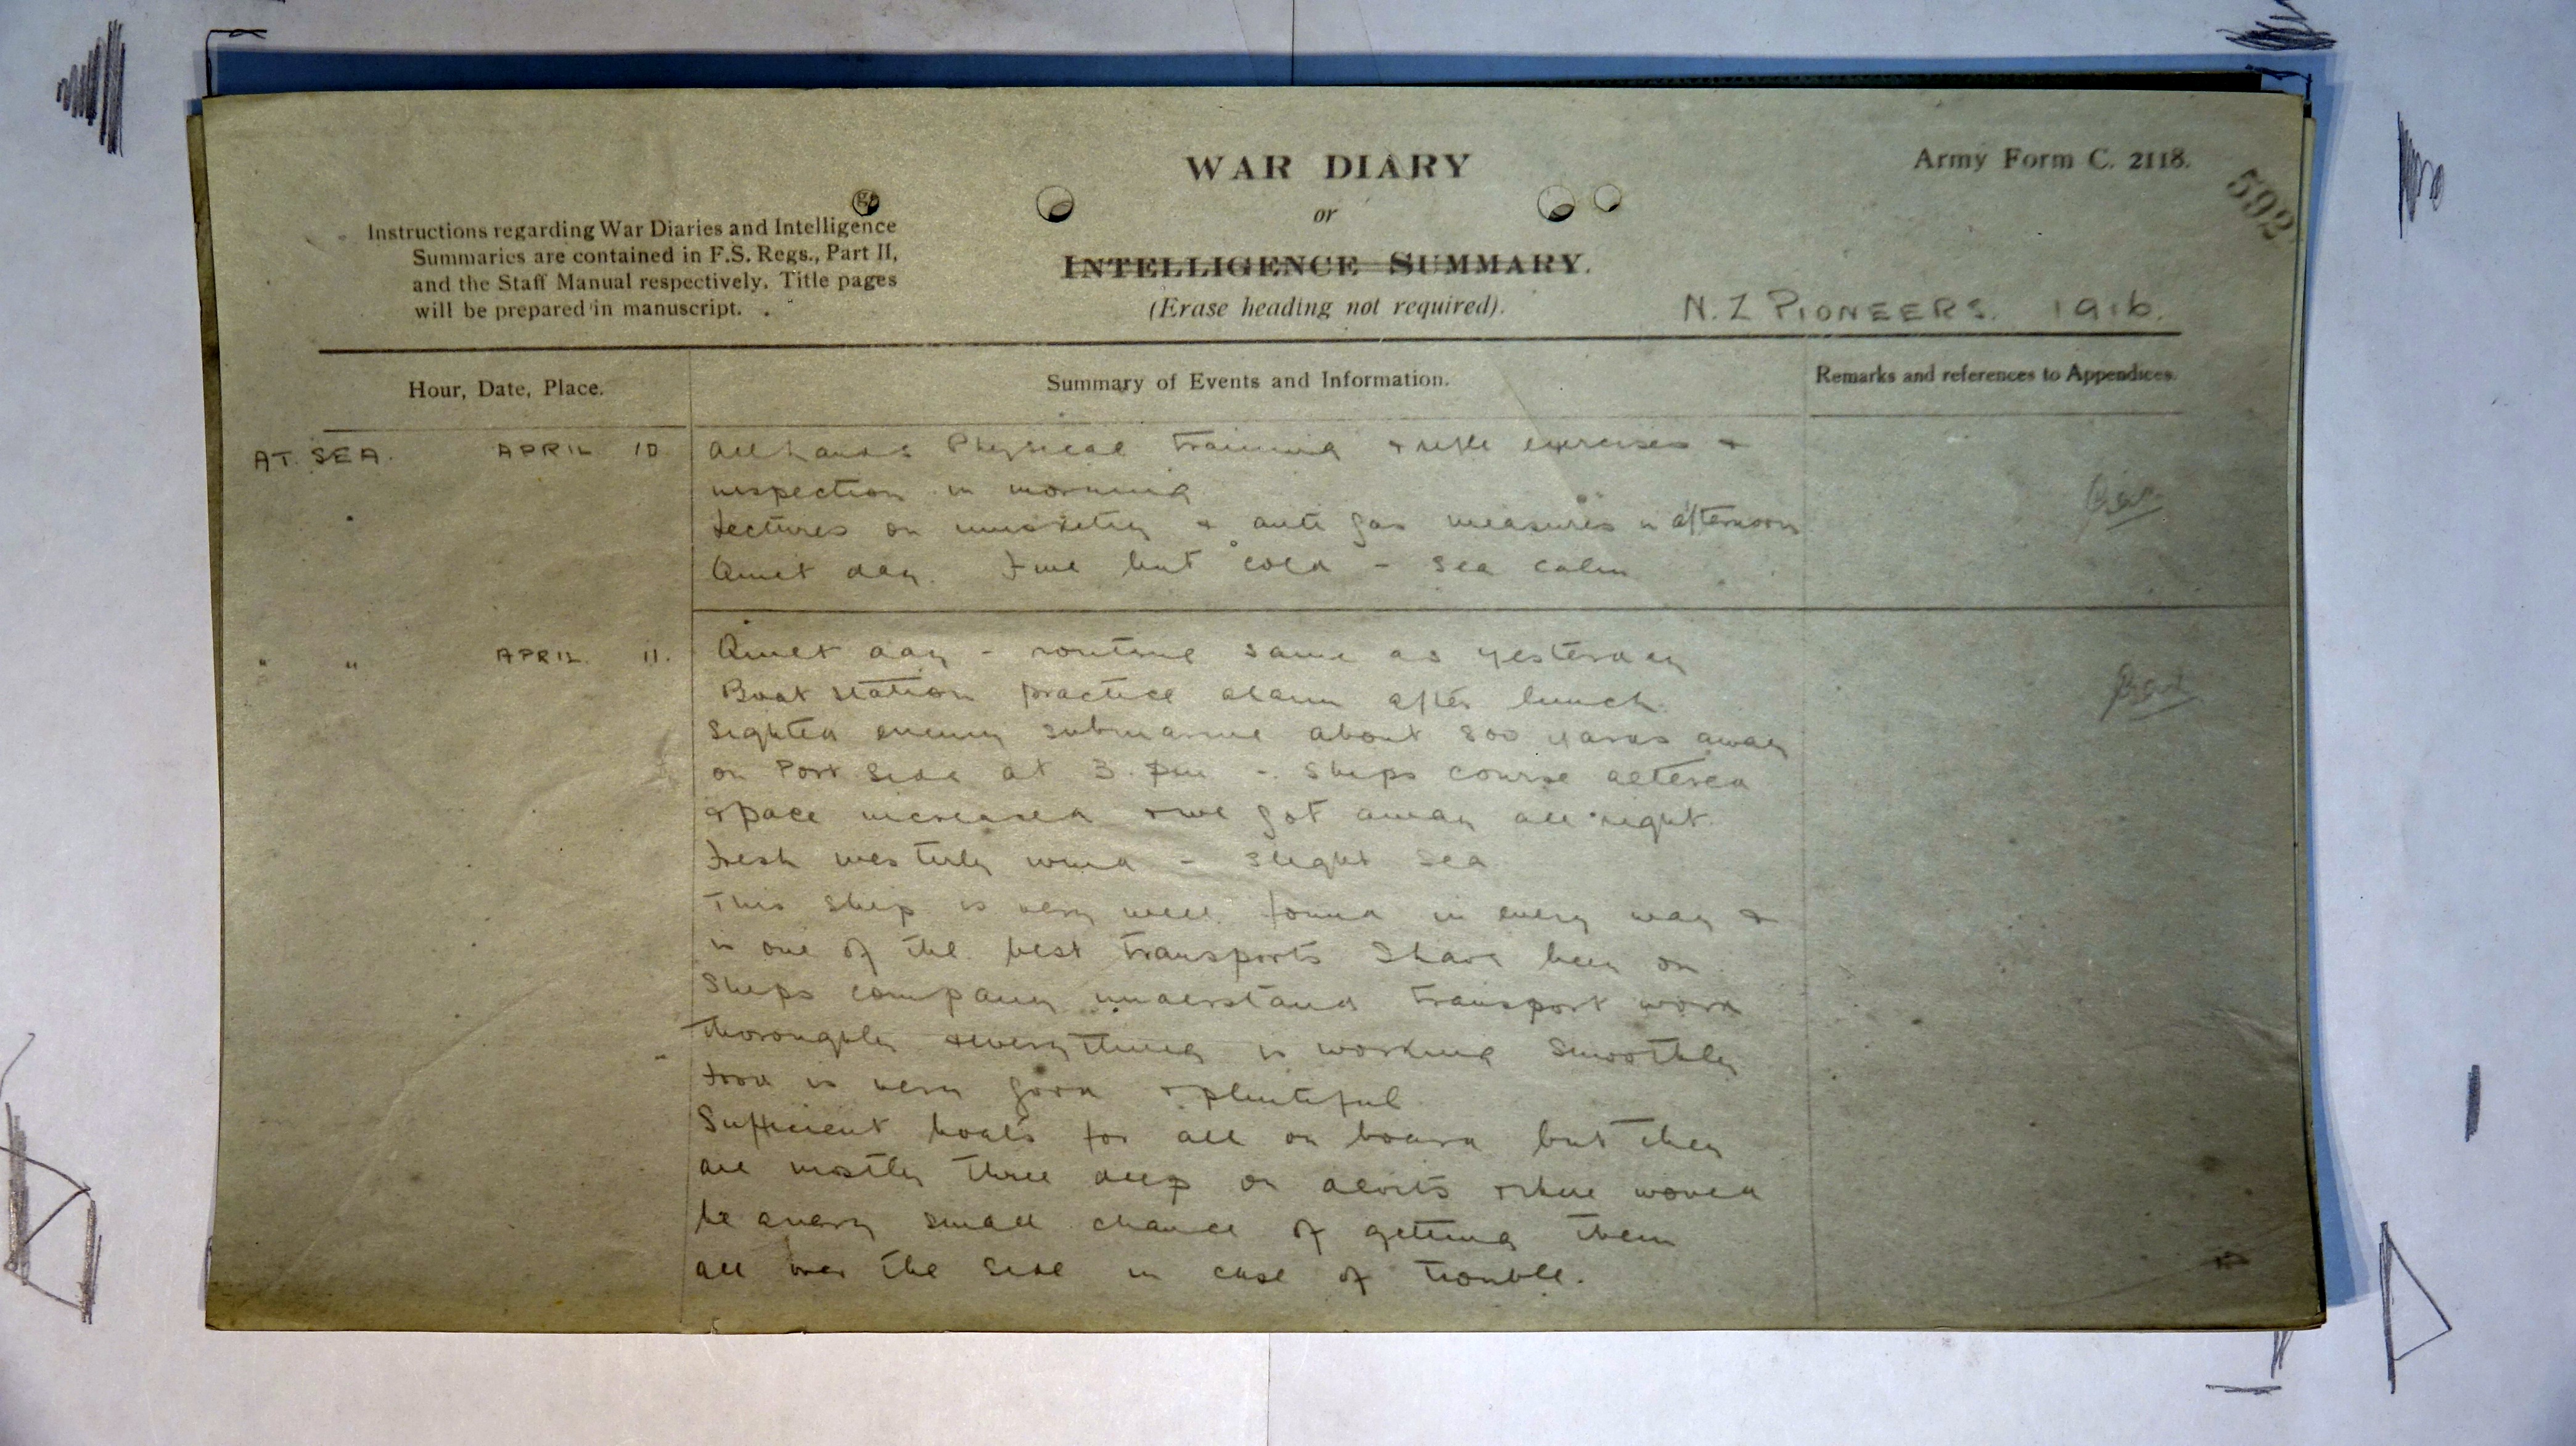 WAR DIARY
or
INTELLIGENCE SUMMARY.
(Erase heading not required).
Army Form C. 2118.
592
Instructions regarding War Diaries and Intelligence
Summaries are contained in F.S. Regs., Part II,
and the Staff Manual respectively. Title pages
will be prepared in manuscript.
N.Z PIONEERS. 1916.
Hour, Date, Place.
Summary of Events and Information.
Remarks and references to Appendices.
AT SEA. APRIL 10 All hands Physical Training & rifle exercises &
inspection in morning
Lectures on musketry & anti gas measures in afternoon
Quiet day. Fine but cold - sea calm
" " APRIL. 11. Quiet day - routine same as yesterday
Boat station practice alarm after lunch.
Sighted enemy submarine about 800 yards away
on Port side at 3. pm - ships course altered
& pace increased & we got away all right.
Fresh westerly wind - slight sea
This ship is very well found in every way &
is one of the best transports I have been on
Ships company understand transport work
thoroughly & everything is working smoothly
Food is very good & plentiful
Sufficient boats for all on board but they
are mostly three deep on davits & there would
be a very small chance of getting them
all over the side in case of trouble.